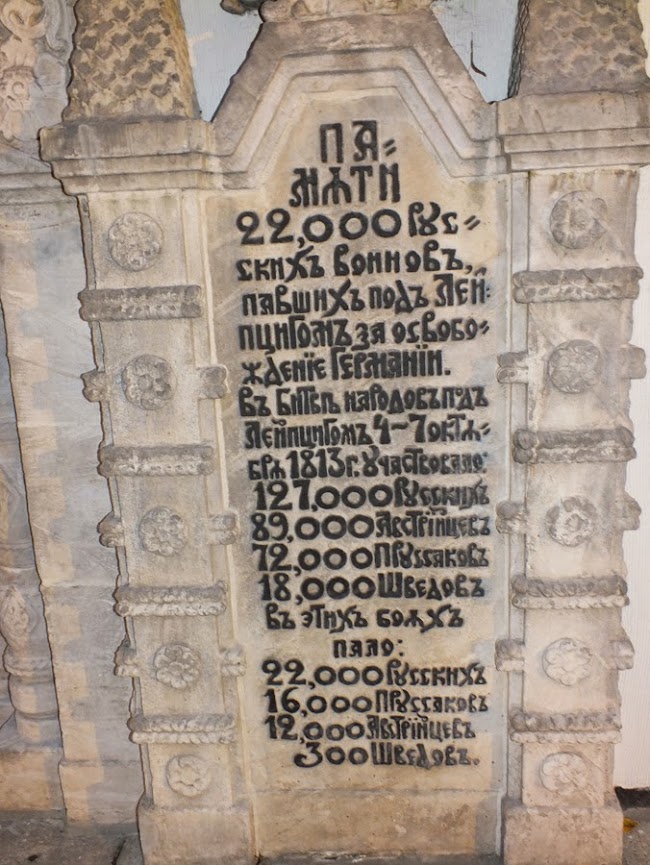 ПА=
МѦТИ
22,000 РУС=
СКИХЪ ВОИНОВЪ,
ПАВШИХЪ ПОДЪ ЛЕЙ=
ПЦИГОМЪ ЗА ОСВОБО=
ЖДЕНІЕ ГЕРМАНІИ.
ВЪ БИТВѢ НАРОДОВЪ ПОДЪ
ЛЕЙПЦИГОМЪ 4–7 ОКТѦ=
БРѦ 1813 Г. УЧАСТВОВАЛО:
127,000 РУССКИХЪ
89,000 АВСТРІЙЦЕВЪ
72,000 ПРУССАКОВЪ
18,000 ШВЕДОВЪ
ВЪ ЭТИХЪ БОѦХЪ
ПАЛО:
22,000 РУССКИХЪ
16,000 ПРУССАКОВЪ
12,000 АВСТРІЙЦЕВЪ
300 ШВЕДОВЪ.